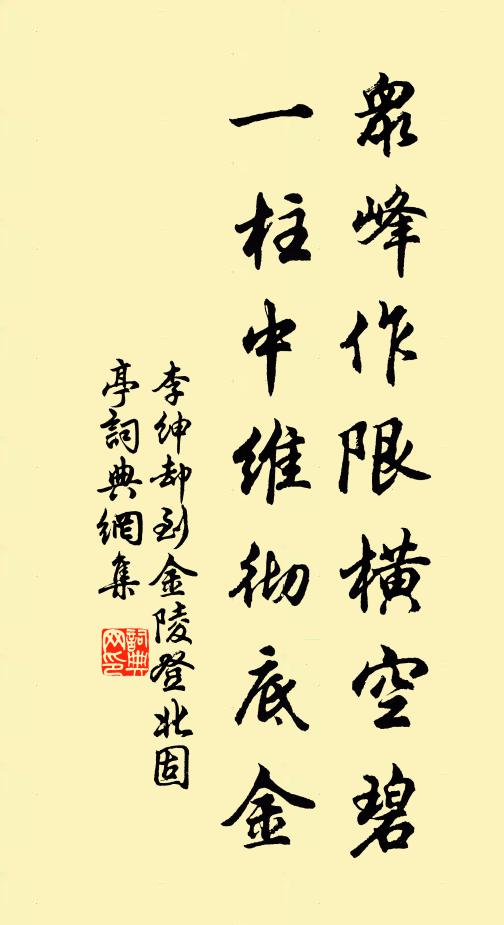 眾峰作限橫空碧
一柱中維彻底金
李绅却到金陵登北固
亭詞典網集
詞典网印